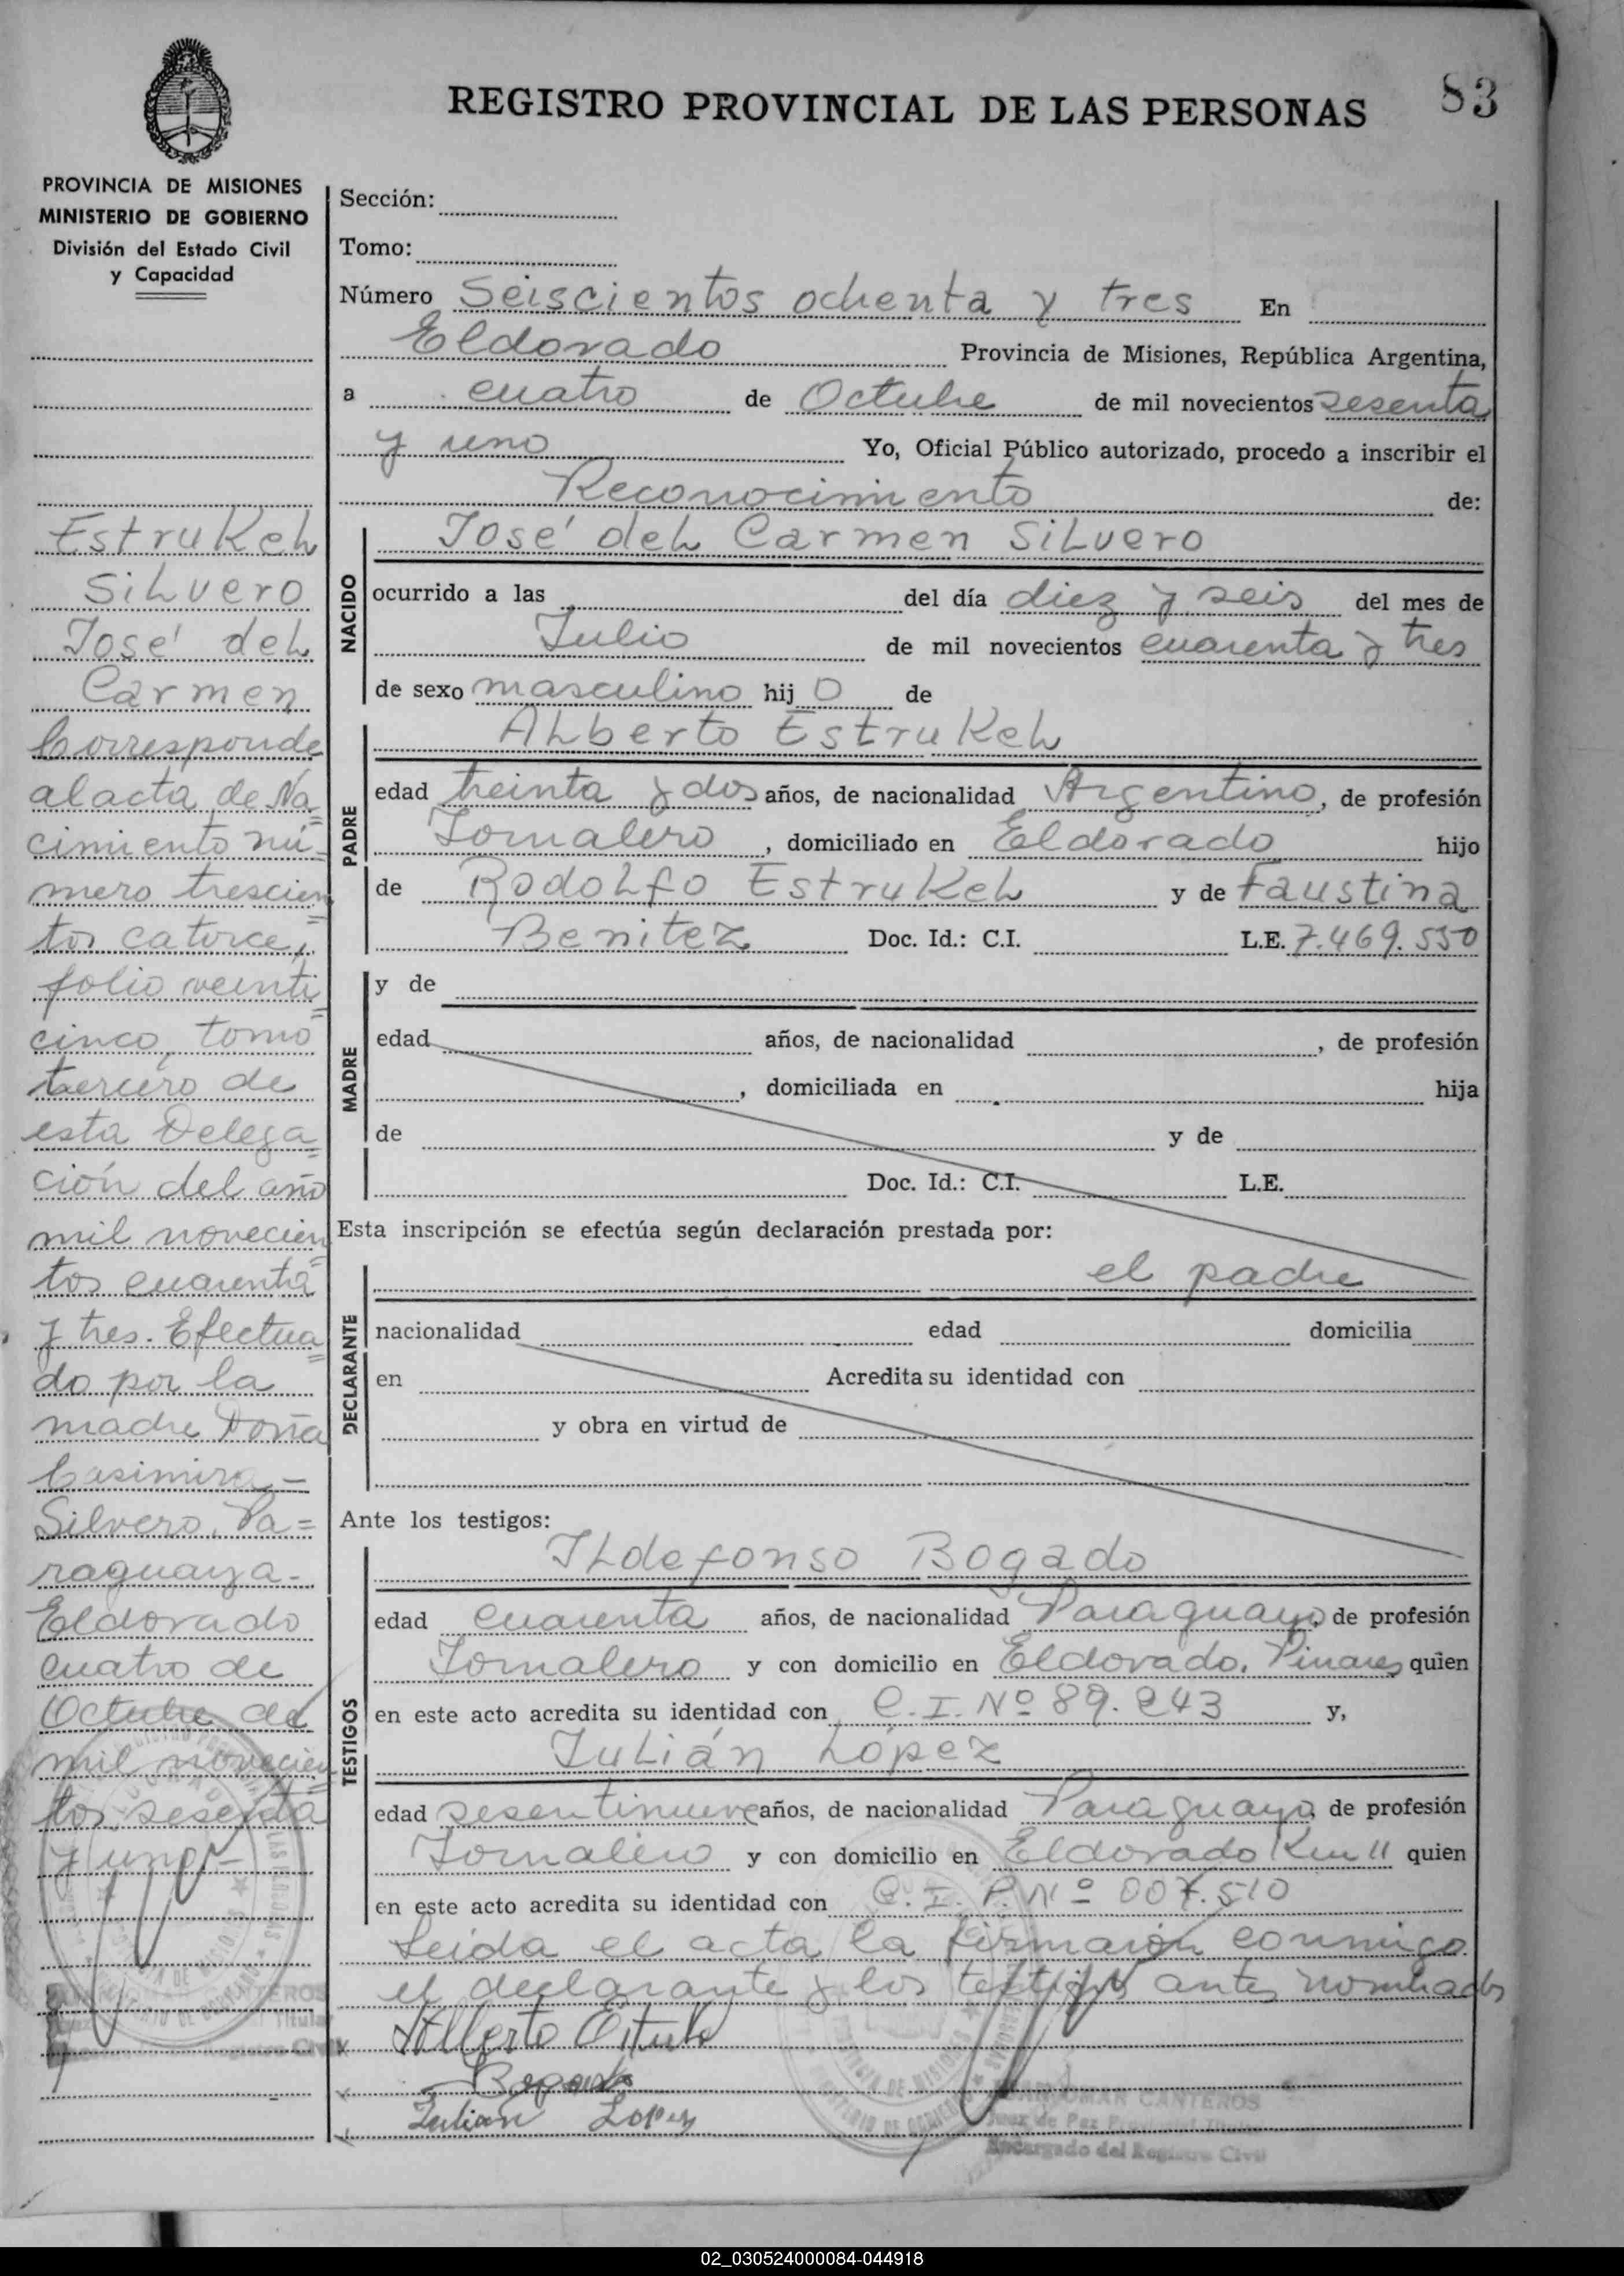 REGISTRO PROVINCIAL DE LAS PERSONAS
83
PROVINCIA DE MISIONES
MINISTERIO DE GOBIERNO
División del Estado Civil
y Capacidad
EstruKeL
SiLvero
José deL
Carmen
Corresponde
al acta de Na=
cimiento nú=
mero trescien=
tos catorce,
folio veinti=
cinco, tomo
tercero de
esta Delega=
ción del año
mil novecien=
tos cuarenta
y tres. Efectua=
do por la
madre Doña
Casimira -
Silvero, Pa=
raguaya.
Eldorado
cuatro de
Octubre de
mil novecien=
tos sesenta
y uno.-
Sección:
Tomo:
Número Seiscientos ochenta y tres En
Eldorado Provincia de Misiones, República Argentina,
a cuatro de Octubre de mil novecientos sesenta
y uno Yo, Oficial Público autorizado, procedo a inscribir el
Reconocimiento de:
NACIDO
José deL Carmen SiLvero
ocurrido a las del día diez y seis del mes de
Julio de mil novecientos cuarenta y tres
de sexo masculino hij o de
PADRE
ALberto EstruKeL
edad treinta y dos años, de nacionalidad Argentino, de profesión
Jornalero, domiciliado en Eldorado hijo
de RodoLfo EstruKeL y de Faustina
Benitez Doc. Id.: C.I. L.E. 7.469.550
MADRE
y de
edad años, de nacionalidad , de profesión
, domiciliada en hija
de y de
Doc. Id.: C.I. L.E.
Esta inscripción se efectúa según declaración prestada por:
DECLARANTE
el padre
nacionalidad edad domicilia
en Acredita su identidad con
y obra en virtud de
Ante los testigos:
TESTIGOS
ILdefonso Bogado
edad cuarenta años, de nacionalidad Paraguayo, de profesión
Jornalero y con domicilio en Eldorado, Pinares quien
en este acto acredita su identidad con C.I. Nº 89.243 y,
JuLián López
edad sesentinueve años, de nacionalidad Paraguayo, de profesión
Jornalero y con domicilio en Eldorado Km 11 quien
en este acto acredita su identidad con C.I.P. Nº 007.510
Leida el acta la firmaron conmigo
el declarante y los testigos antes nombrados
Alberto
Bogado
Julian Lopez
CANTEROS
Juez de Paz
Encargado del Registro Civil
02_030524000084-044918